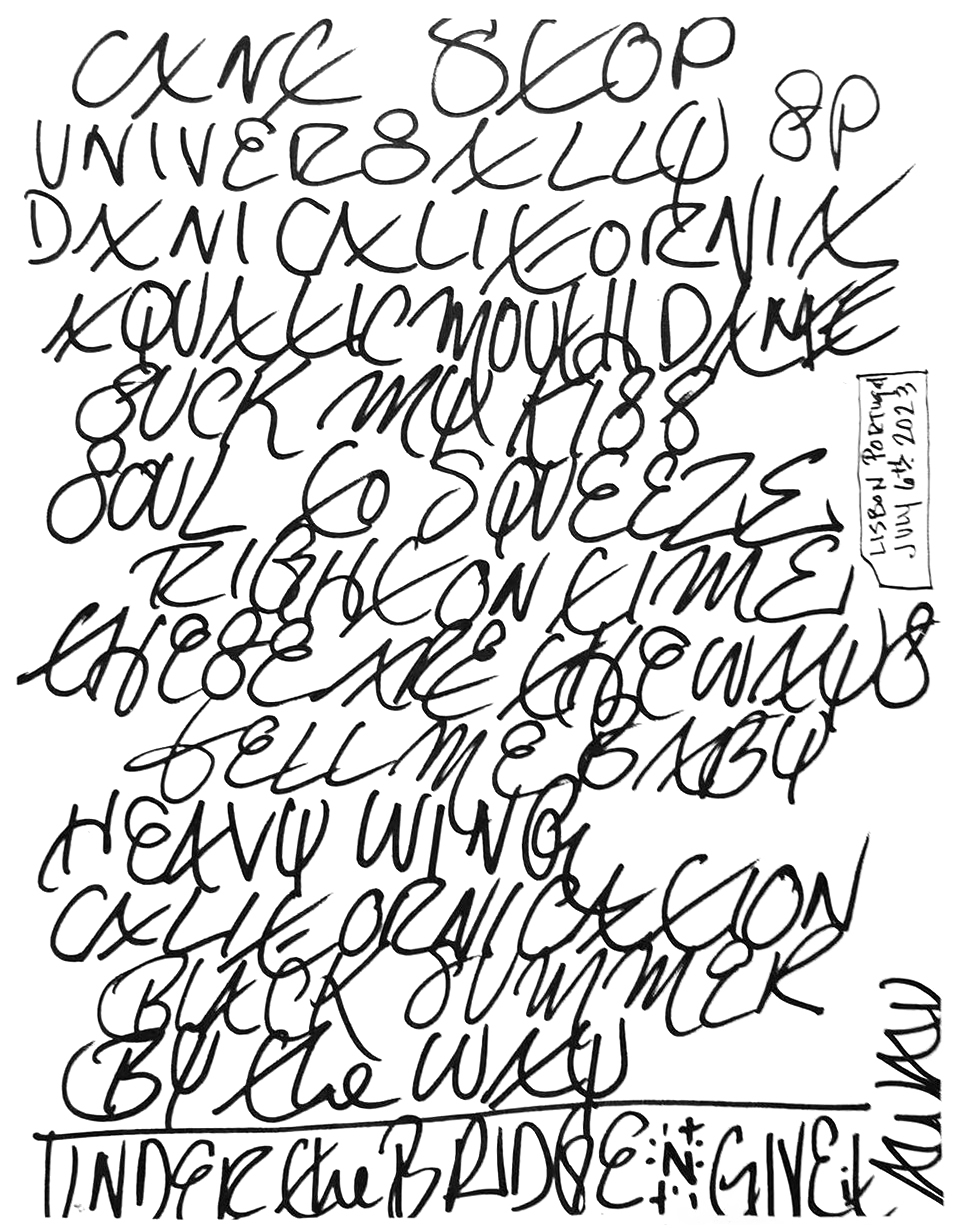 CANT STOP
UNIVERSALLY SP
DANI CALIFORNIA
AQUATIC MOUTH DANCE
SUCK MY KISS
SOUL TO SQUEEZE
RIGHT ON TIME
THESE ARE THE WAYS
TELL ME BABY
HEAVY WING
CALIFORNICATION
BLACK SUMMER
BY the WAY
UNDER the BRIDGE N GIVE it
LISBON PORTUGAL
JULY 6th. 2023